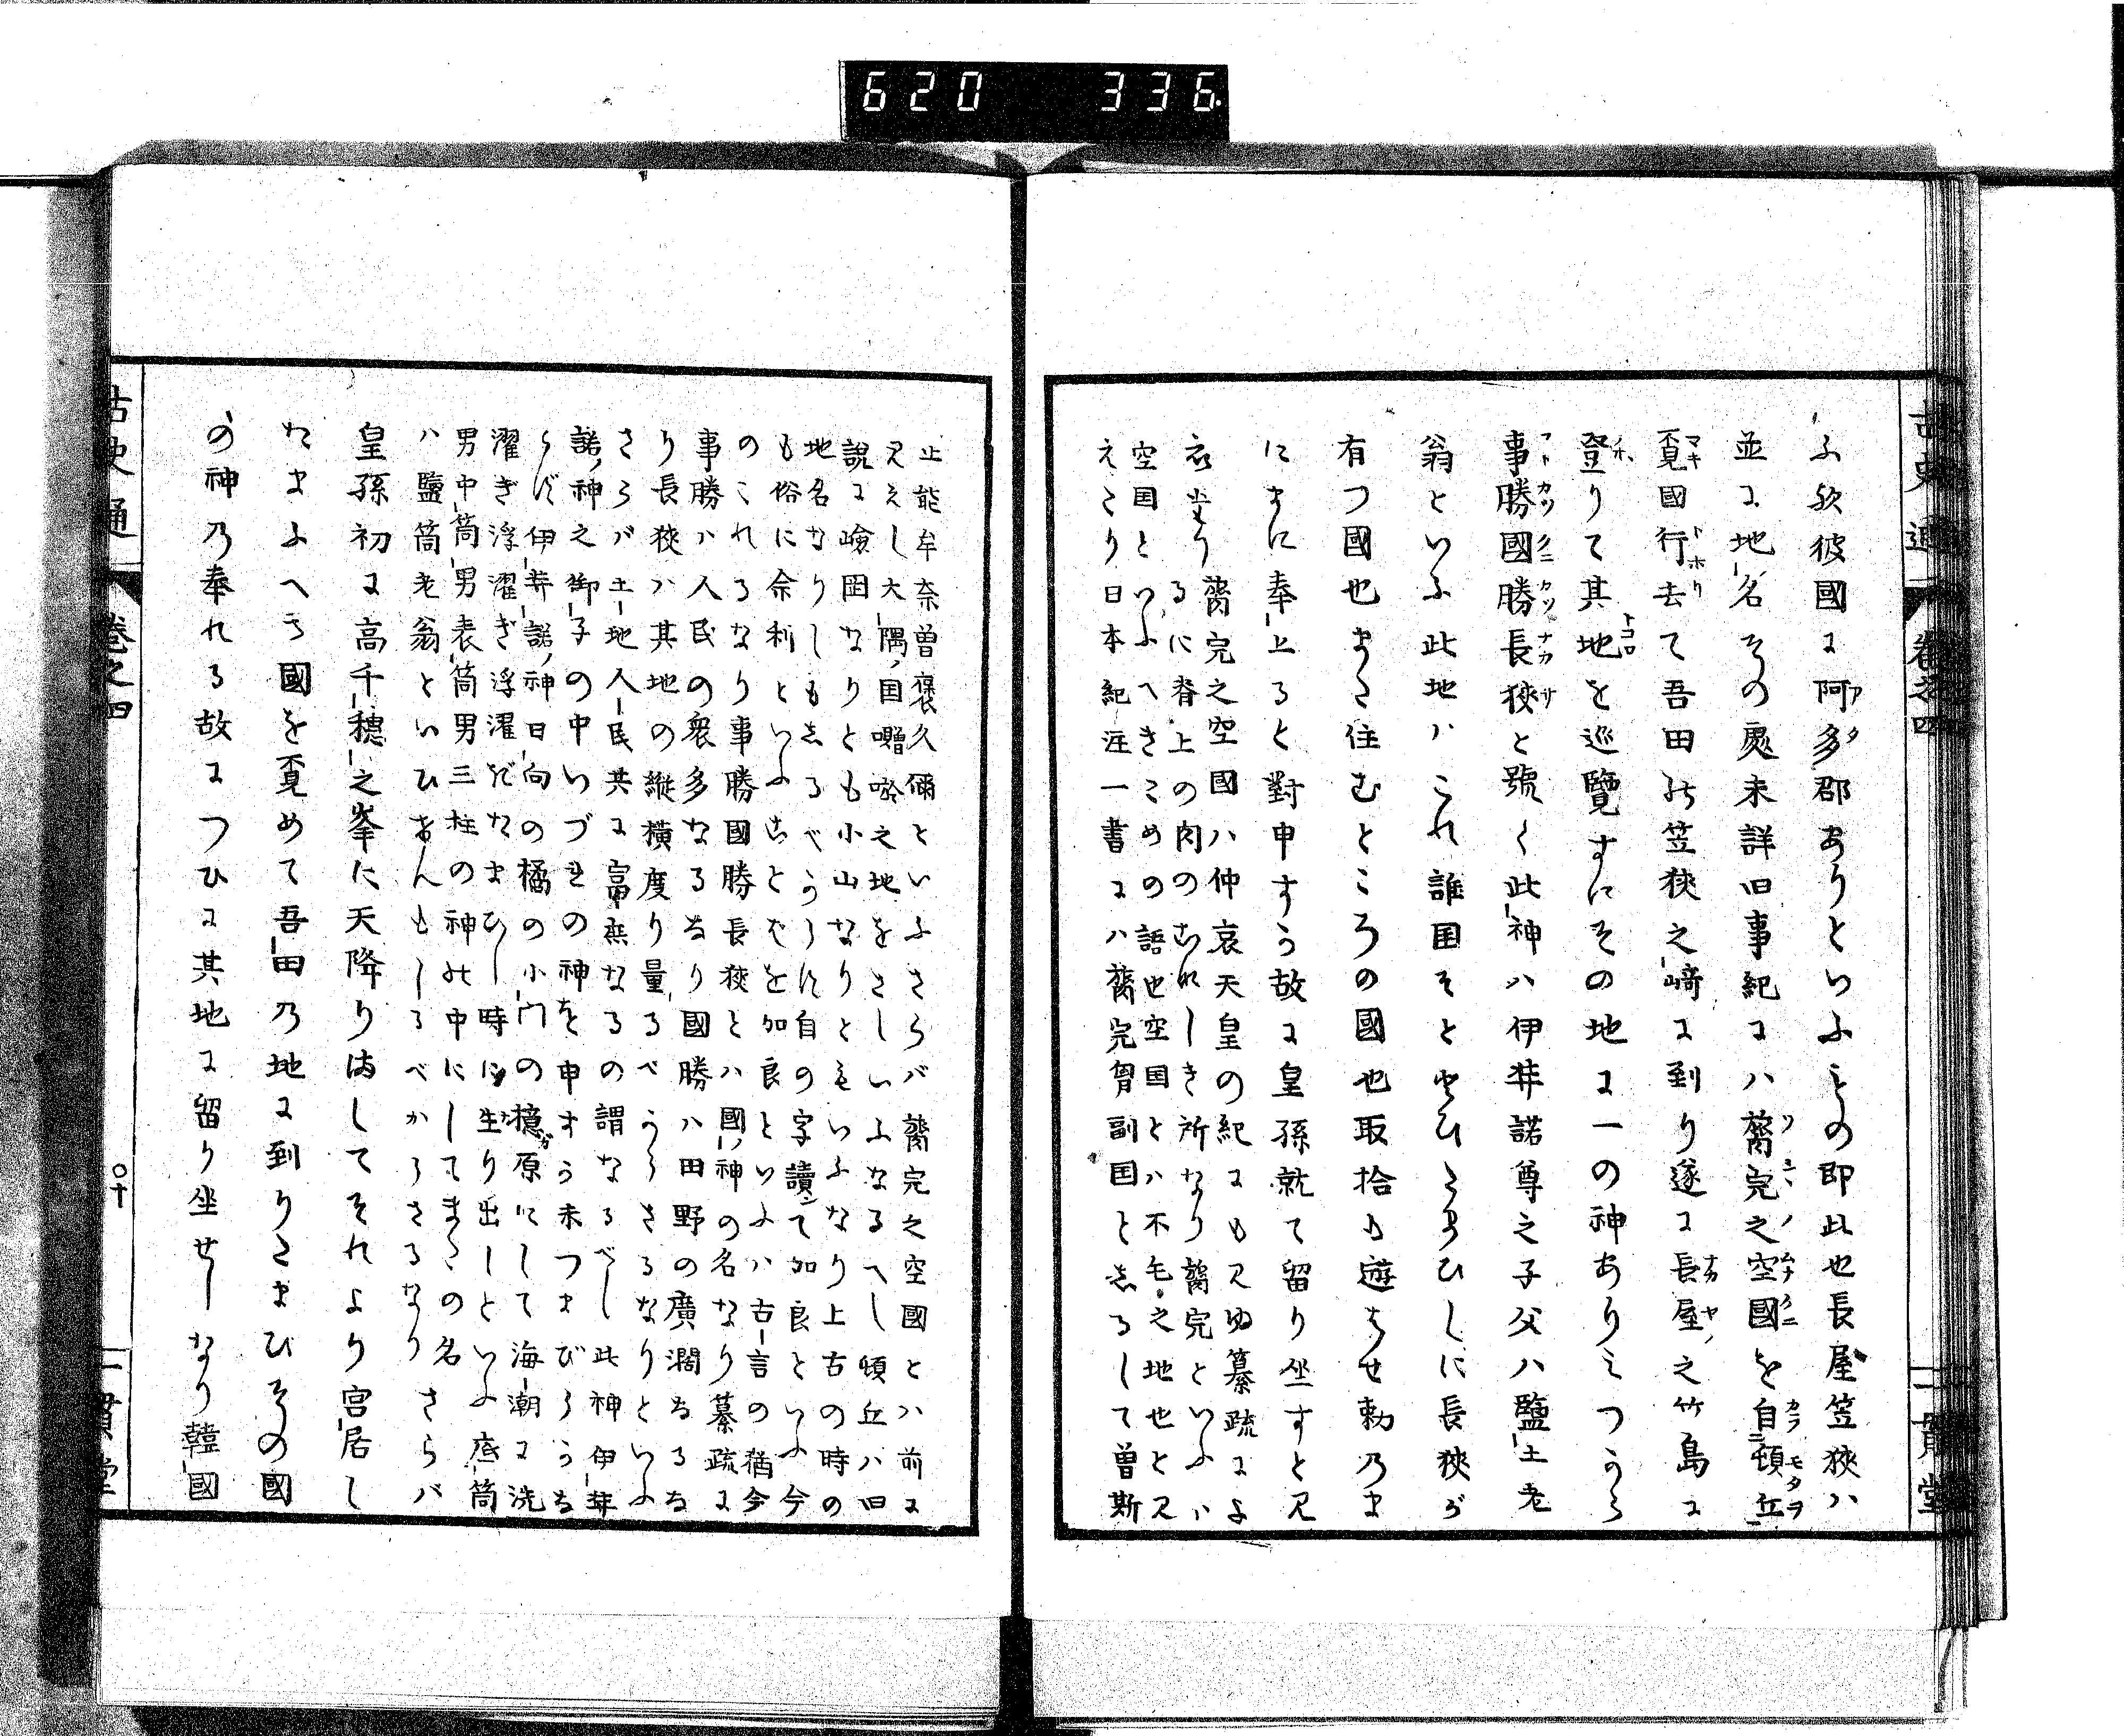 620 336
古史通 卷之四 一貫堂
ふ歟彼國に阿多郡ありといふその即此也長屋笠狹ハ
並に地名その處未詳旧事紀にハ膂宍之空國を自頓丘
覓國行去て吾田の笠狹之﨑に到り遂に長屋之竹島に
登りて其地を巡覽すにその地に一の神ありミつから
事勝國勝長狹と號く此神ハ伊弉諾尊之子父ハ鹽土老
翁といふ此地ハこれ誰国そと とひ ひしに長狹が
有つ國也 住むところの國也取拾 遊 せ勅乃ま
にまに奉上ると對申す故に皇孫就て留り坐すと見
膂宍之空國ハ仲哀天皇の紀にも見ゆ纂疏によ
るに脊上の肉の しき所なり膂宍といふハ
空国といふへきこめの語也空国とハ不毛之地也と見
えたり日本紀注一書にハ膂宍胷副国としるして曽斯
止能牟奈曽褒久儞といふさらバ膂宍之空國とハ前に
見えし大隅国囎唹之地をさしいふなるへし頓丘ハ旧
説に險固なりとも小山なりともいふなり上古の時の
地名なりしもしるべうらす自の字讀て加良といふ今
も俗に余利といふことを加良といふハ古言の猶今
のこれるなり事勝國勝長狹とハ國神の名なり纂疏に
事勝ハ人民の衆多なるなり國勝ハ田野の廣濶なるな
り長狹ハ其地の縱横度り量るべ さるなりといふ
さらバ土地人民共に富 なるの謂なるべし此神伊弉
諾神之御子の中いづれの神を申す 未つまびらうな
らず伊弉諾神日向の橘の小門の檍原にして海潮に洗
濯ぎ浮濯ぎ浮濯ぎたまひし時に生り出しといふ底筒
男中筒男表筒男三柱の神の中にしてま の名さらバ
ハ鹽筒老翁といひ んもしるべからさるなり
皇孫初に高千穗之峯に天降りましてそれより宮居し
たまふへき國を覓めて吾田乃地に到りたまひその國
の神乃奉れる故につひに其地に留り坐せしなり韓國
古史通 卷之四 ○十 一貫堂